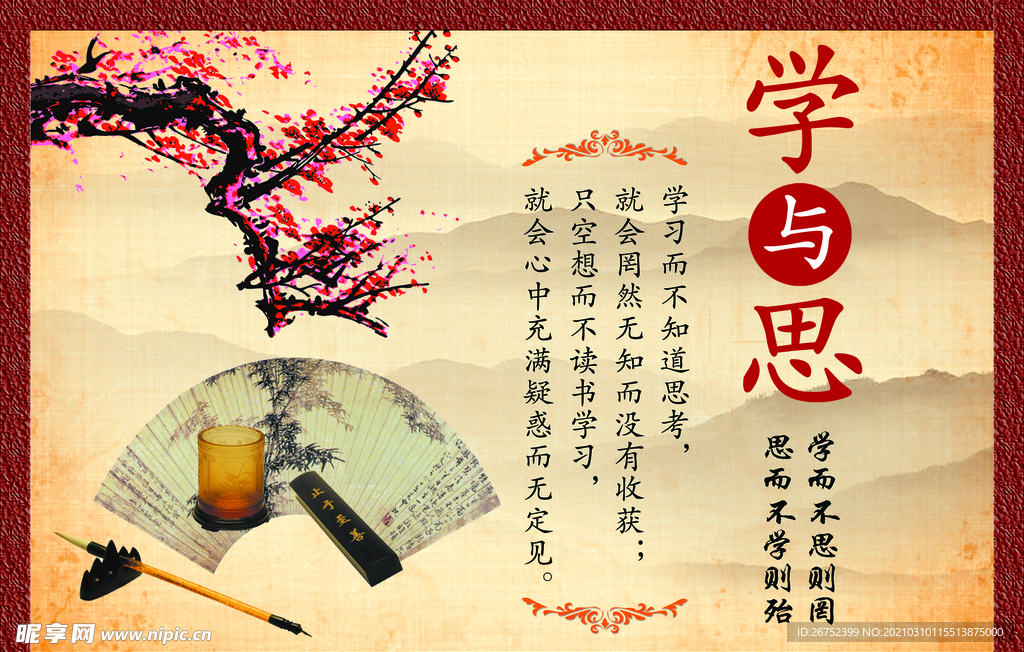 学与思
学而不思则罔
思而不学则殆
学习而不知道思考，
就会罔然无知而没有收获；
只空想而不读书学习，
就会心中充满疑惑而无定见。
止于至善
昵享网 www.nipic.cn
ID:26752399 NO:20210310115513875000